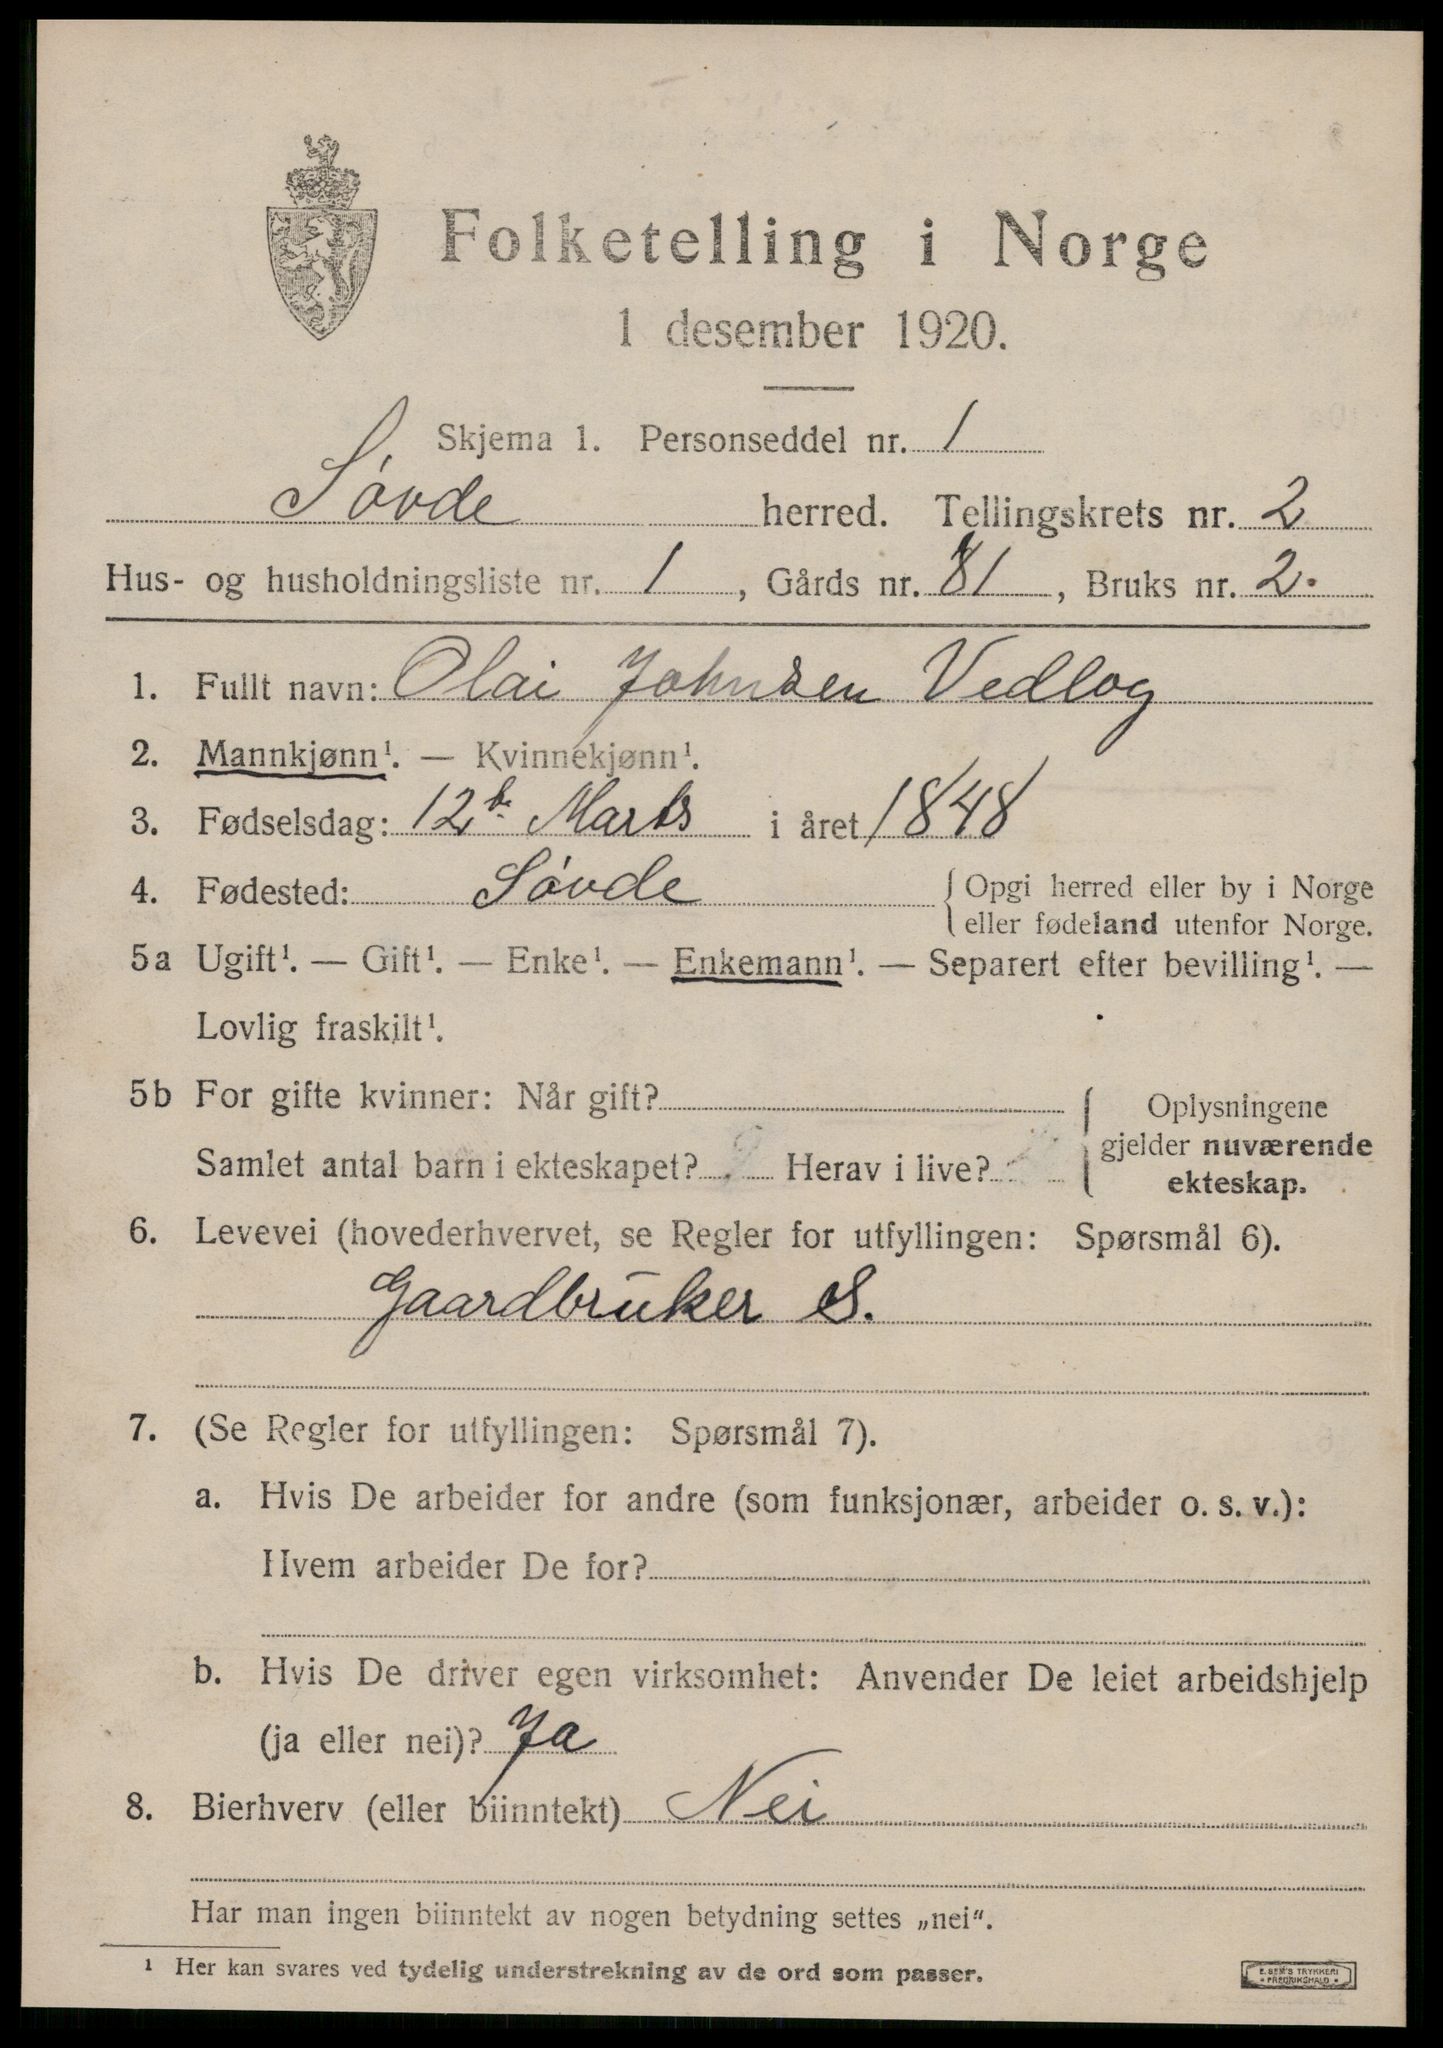 Folketelling i Norge
1 desember 1920.
Skjema 1. Personseddel nr. 1
Søvde herred. Tellingskrets nr. 2
Hus- og husholdningsliste nr. 1, Gårds nr. 81, Bruks nr. 2.
1. Fullt navn: Olai Johnsen Vedlog
2. Mannkjønn¹. — Kvinnekjønn¹.
3. Fødselsdag: 12te Marts i året 1848
4. Fødested: Søvde { Opgi herred eller by i Norge
eller fødeland utenfor Norge.
5a Ugift¹. — Gift¹. — Enke¹. — Enkemann¹. — Separert efter bevilling¹. —
Lovlig fraskilt¹.
5b For gifte kvinner: Når gift?
Samlet antal barn i ekteskapet? Herav i live?
{ Oplysningene
gjelder nuværende
ekteskap.
6. Levevei (hovederhvervet, se Regler for utfyllingen: Spørsmål 6).
Gaardbruker S.
7. (Se Regler for utfyllingen: Spørsmål 7).
a. Hvis De arbeider for andre (som funksjonær, arbeider o. s. v.):
Hvem arbeider De for?
b. Hvis De driver egen virksomhet: Anvender De leiet arbeidshjelp
(ja eller nei)? Ja
8. Bierhverv (eller biinntekt) Nei
Har man ingen biinntekt av nogen betydning settes „nei“.
¹ Her kan svares ved tydelig understrekning av de ord som passer.
E. SEM'S TRYKKERI
FREDRIKSHALD